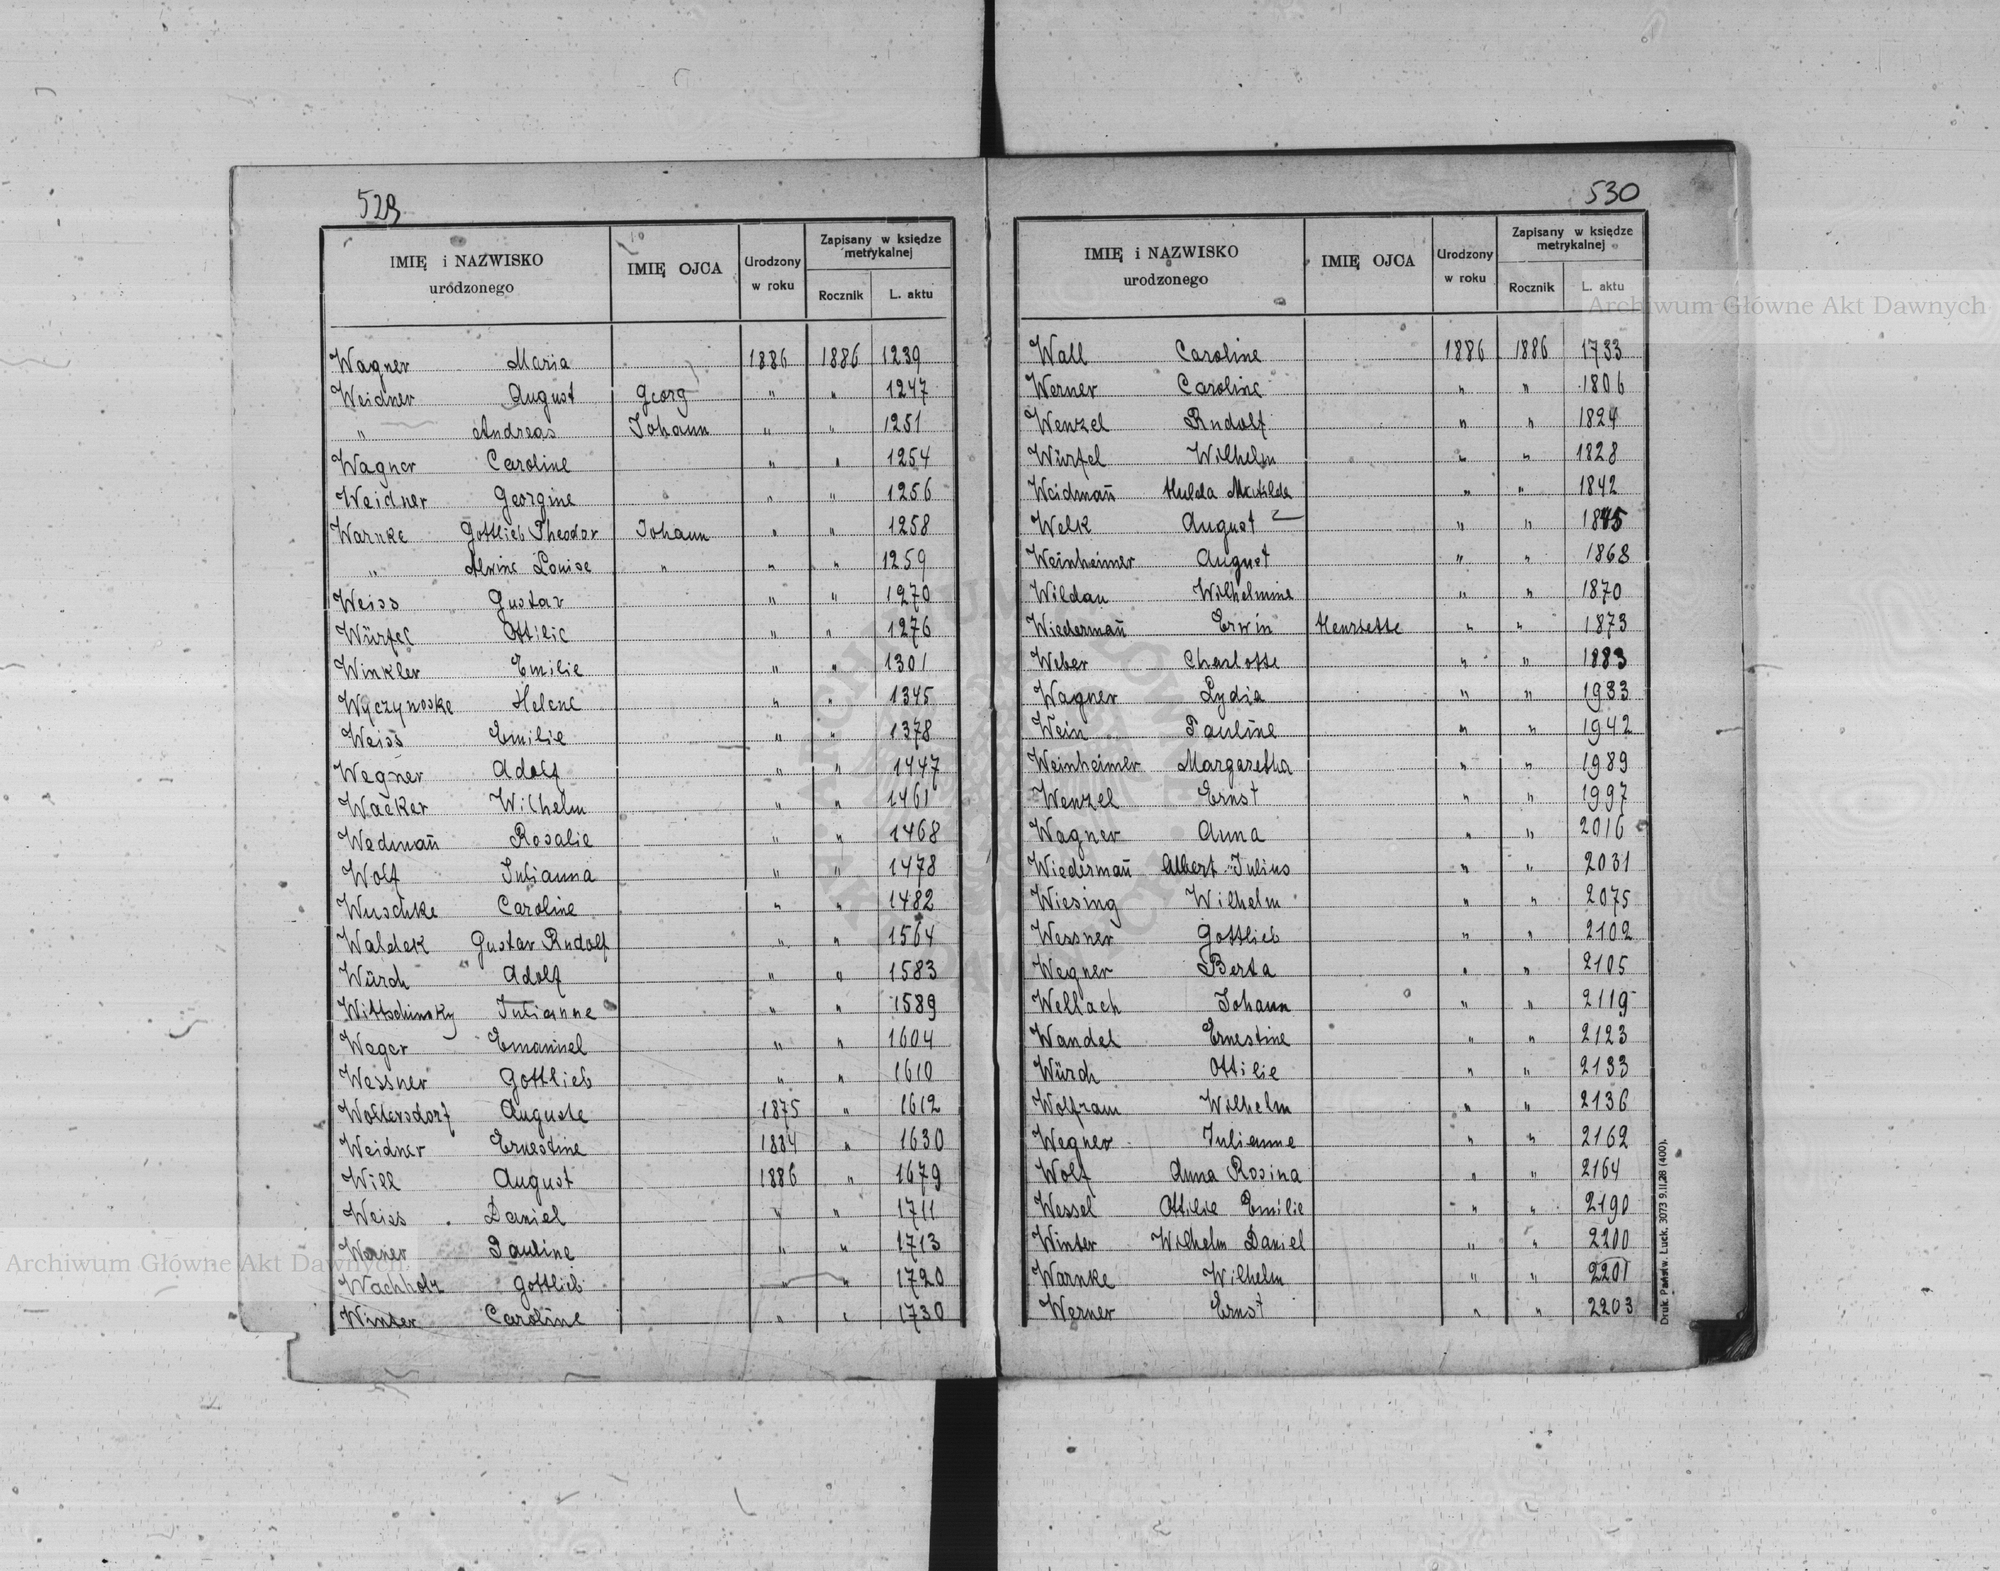 529
IMIĘ i NAZWISKO urodzonego IMIĘ OJCA Urodzony w roku Zapisany w księdze metrykalnej Rocznik L. aktu
Wagner Maria 1886 1886 1239
Weidner August Georg " " 1247
" Andreas Johann " " 1251
Wagner Caroline " " 1254
Weidner Georgine " " 1256
Warnke Gottlieb Theodor Johann " " 1258
" Alwine Louise " " " 1259
Weiss Gustav " " 1270
Würfel Ottilie " " 1276
Winkler Emilie " " 1301
Wączynoske Helene " " 1345
Weiss Emilie " " 1378
Wegner Adolf " " 1447
Wacker Wilhelm " " 1461
Wedmañ Rosalie " " 1468
Wolf Julianna " " 1478
Wuschke Caroline " " 1482
Waldek Gustav Rudolf " " 1564
Würch Adolf " " 1583
Wittschinsky Julianne " " 1589
Weger Emanuel " " 1604
Wessner Gottlieb " " 1610
Woltersdorf Auguste 1875 " 1612
Weidner Ernestine 1884 " 1630
Will August 1886 " 1679
Weiss Daniel " " 1711
Werner Pauline " " 1713
Wachholz Gottlieb " " 1720
Winter Caroline " " 1730
530
IMIĘ i NAZWISKO urodzonego IMIĘ OJCA Urodzony w roku Zapisany w księdze metrykalnej Rocznik L. aktu
Wall Caroline 1886 1886 1733
Werner Caroline " " 1806
Wenzel Rudolf " " 1824
Würfel Wilhelm " " 1828
Weidmañ Hulda Matilda " " 1842
Welk August " " 1845
Weinheimer August " " 1868
Wildau Wilhelmine " " 1870
Wiedermañ Erwin Henriette " " 1873
Weber Charlotte " " 1883
Wagner Lydia " " 1933
Wein Pauline " " 1942
Weinheimer Margaretha " " 1989
Wenzel Ernst " " 1997
Wagner Anna " " 2016
Wiedermañ Albert Julius " " 2031
Wiesing Wilhelm " " 2075
Wessner Gottlieb " " 2102
Wegner Berta " " 2105
Wellach Johann " " 2119
Wandel Ernestine " " 2123
Würch Ottilie " " 2133
Wolfram Wilhelm " " 2136
Wegner Julianne " " 2162
Wolf Anna Rosina " " 2164
Wessel Ottilie Emilie " " 2190
Winter Wilhelm Daniel " " 2200
Warnke Wilhelm " " 2201
Werner Ernst " " 2203
Druk. Państw. Łuck. 3073 9.II.28 (400).
Archiwum Główne Akt Dawnych
Archiwum Główne Akt Dawnych
ARCHIWUM GŁÓWNE AKT DAWNYCH